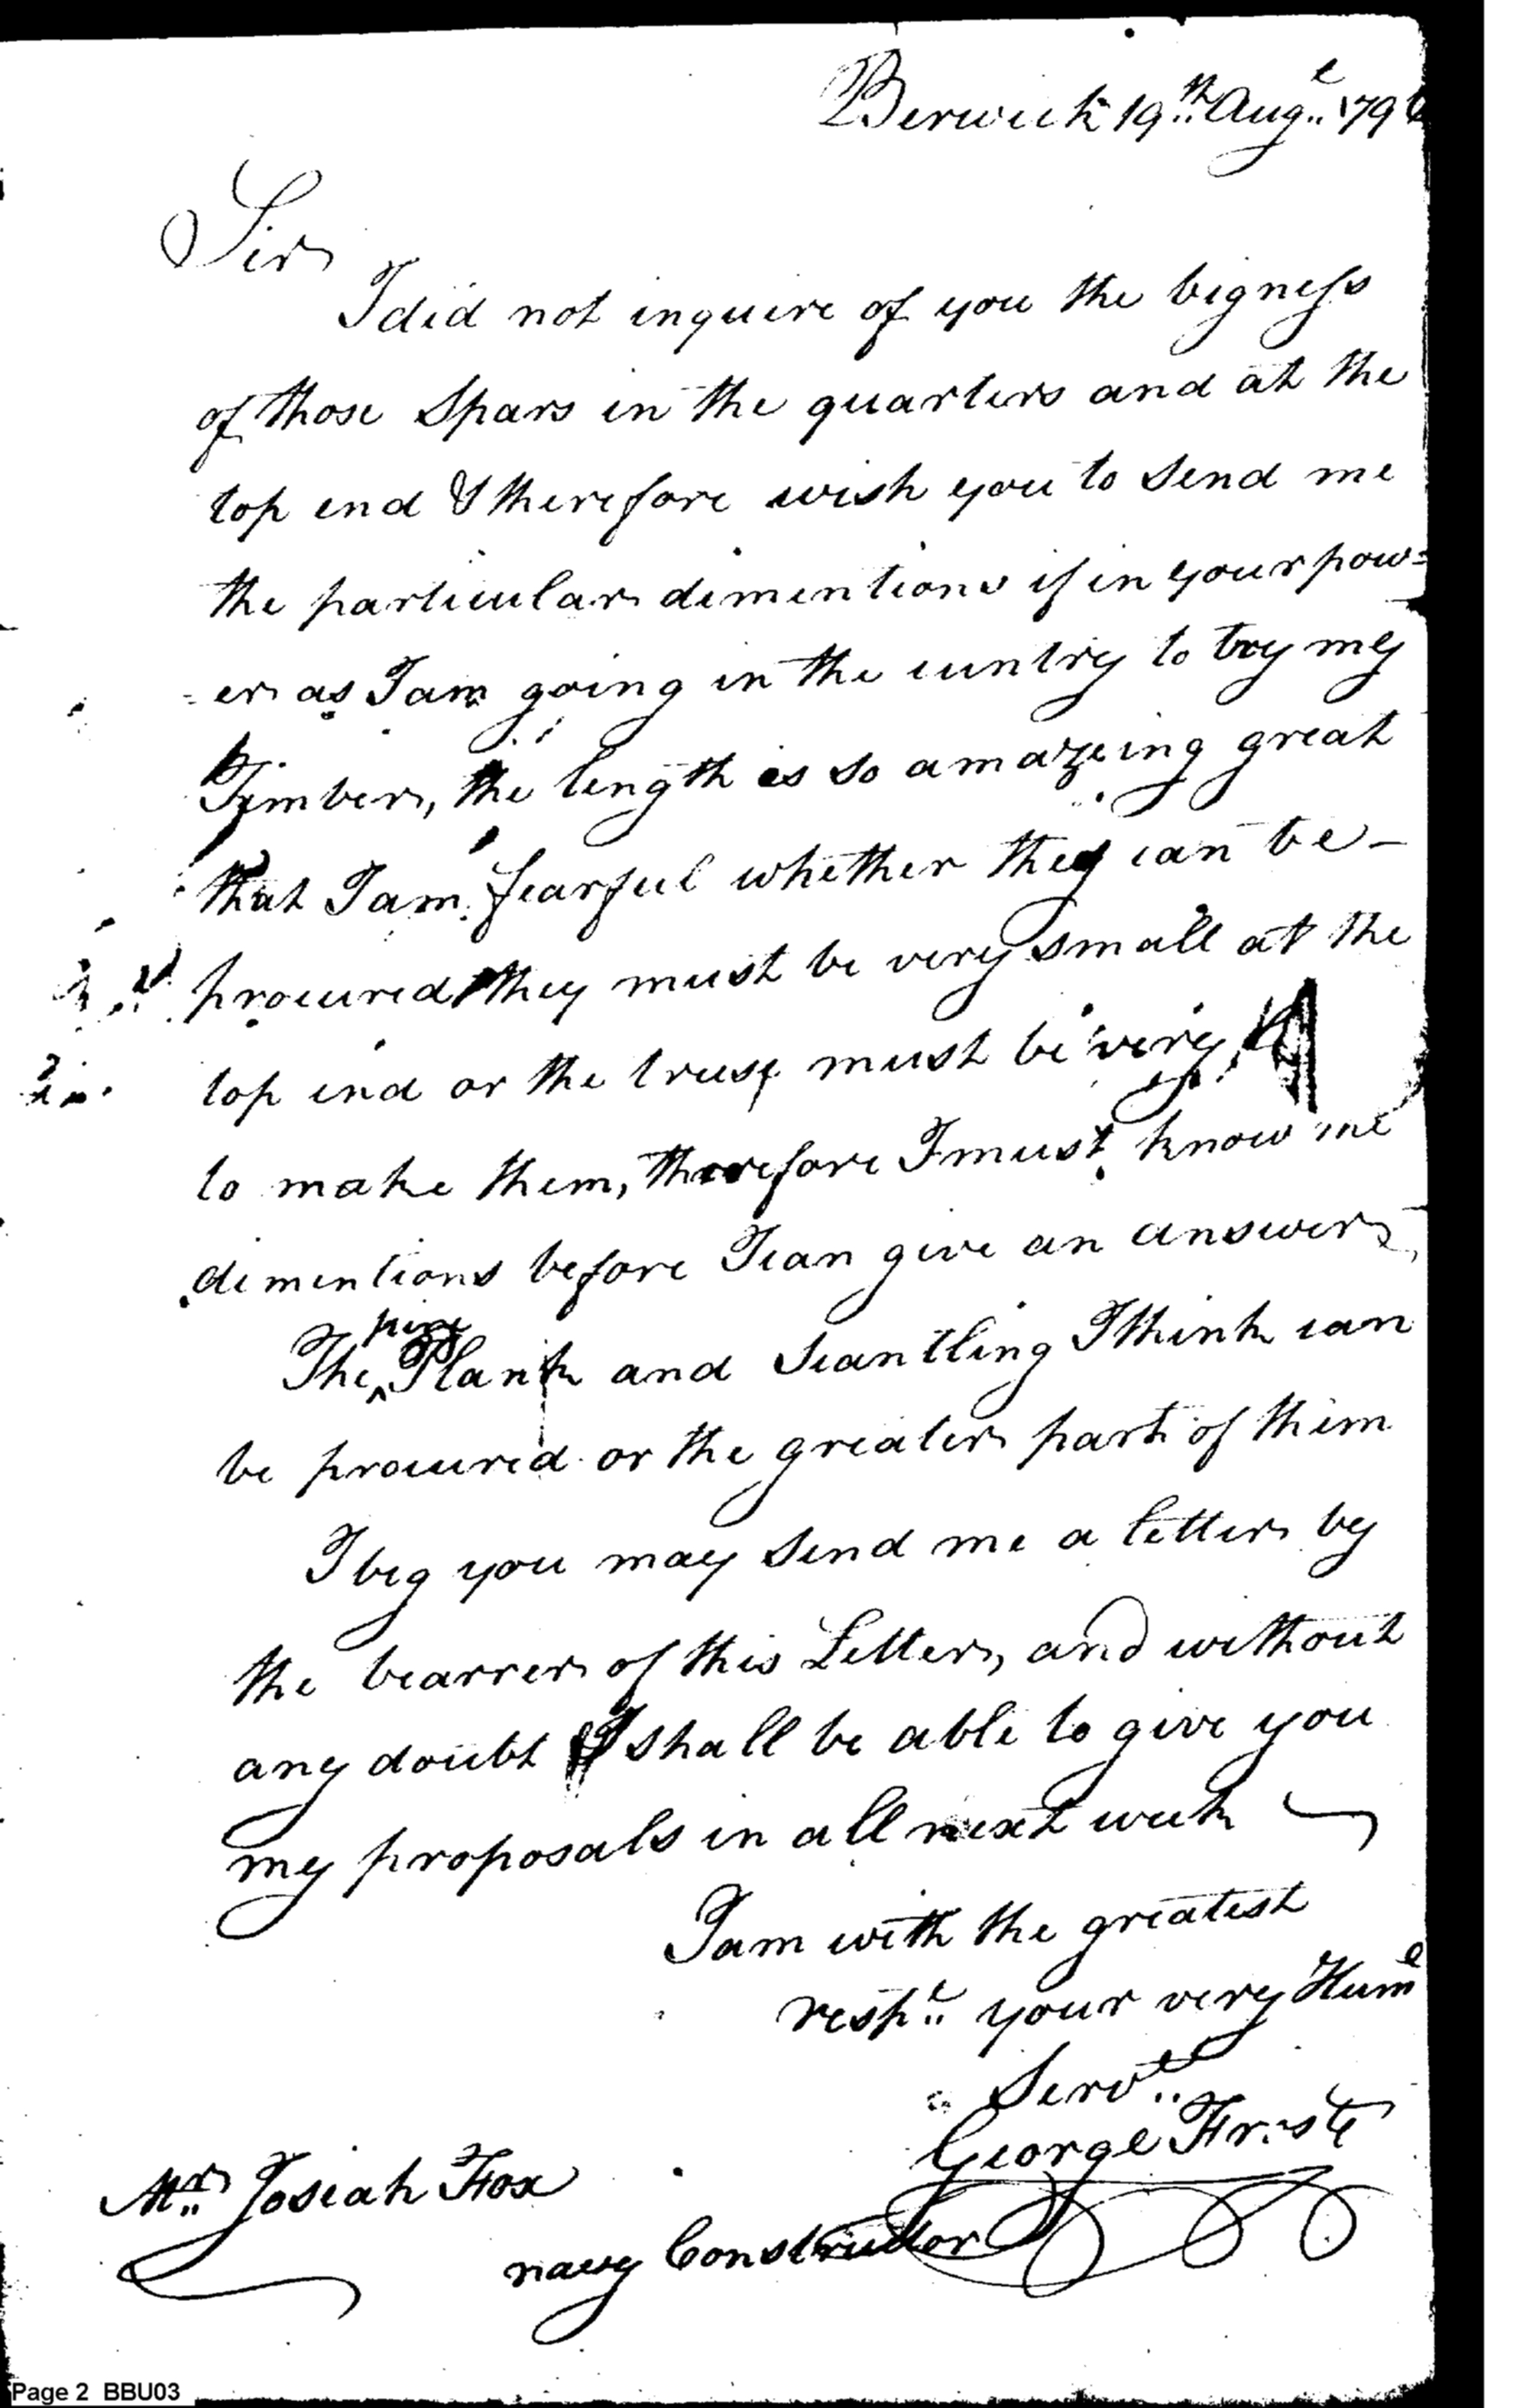 Berwick 19th Augt 179
Sir
I did not inquire of you the bigness
of those Spars in the quarters and at the
top end & therefore wish you to send me
the particular dimentions if in your pow=
=er as I am going in the cuntry to try my
Timber, the length is so amazeing great
that I am fearful whether they can be -
procured they must be very small at the
top end or the trees must be very
to make them, therefore I must know the
dimentions before I can give an answer,
The pine Plank and Scantling I think can
be procured or the greater part of them
I beg you may send me a letter by
the bearrer of this Letter, and without
any doubt I shall be able to give you
my proposals in all next week
I am with the greatest
respt your very Hume
Servt
George
Mr Josiah Fox
navy Constructor
Page 2 BBU03